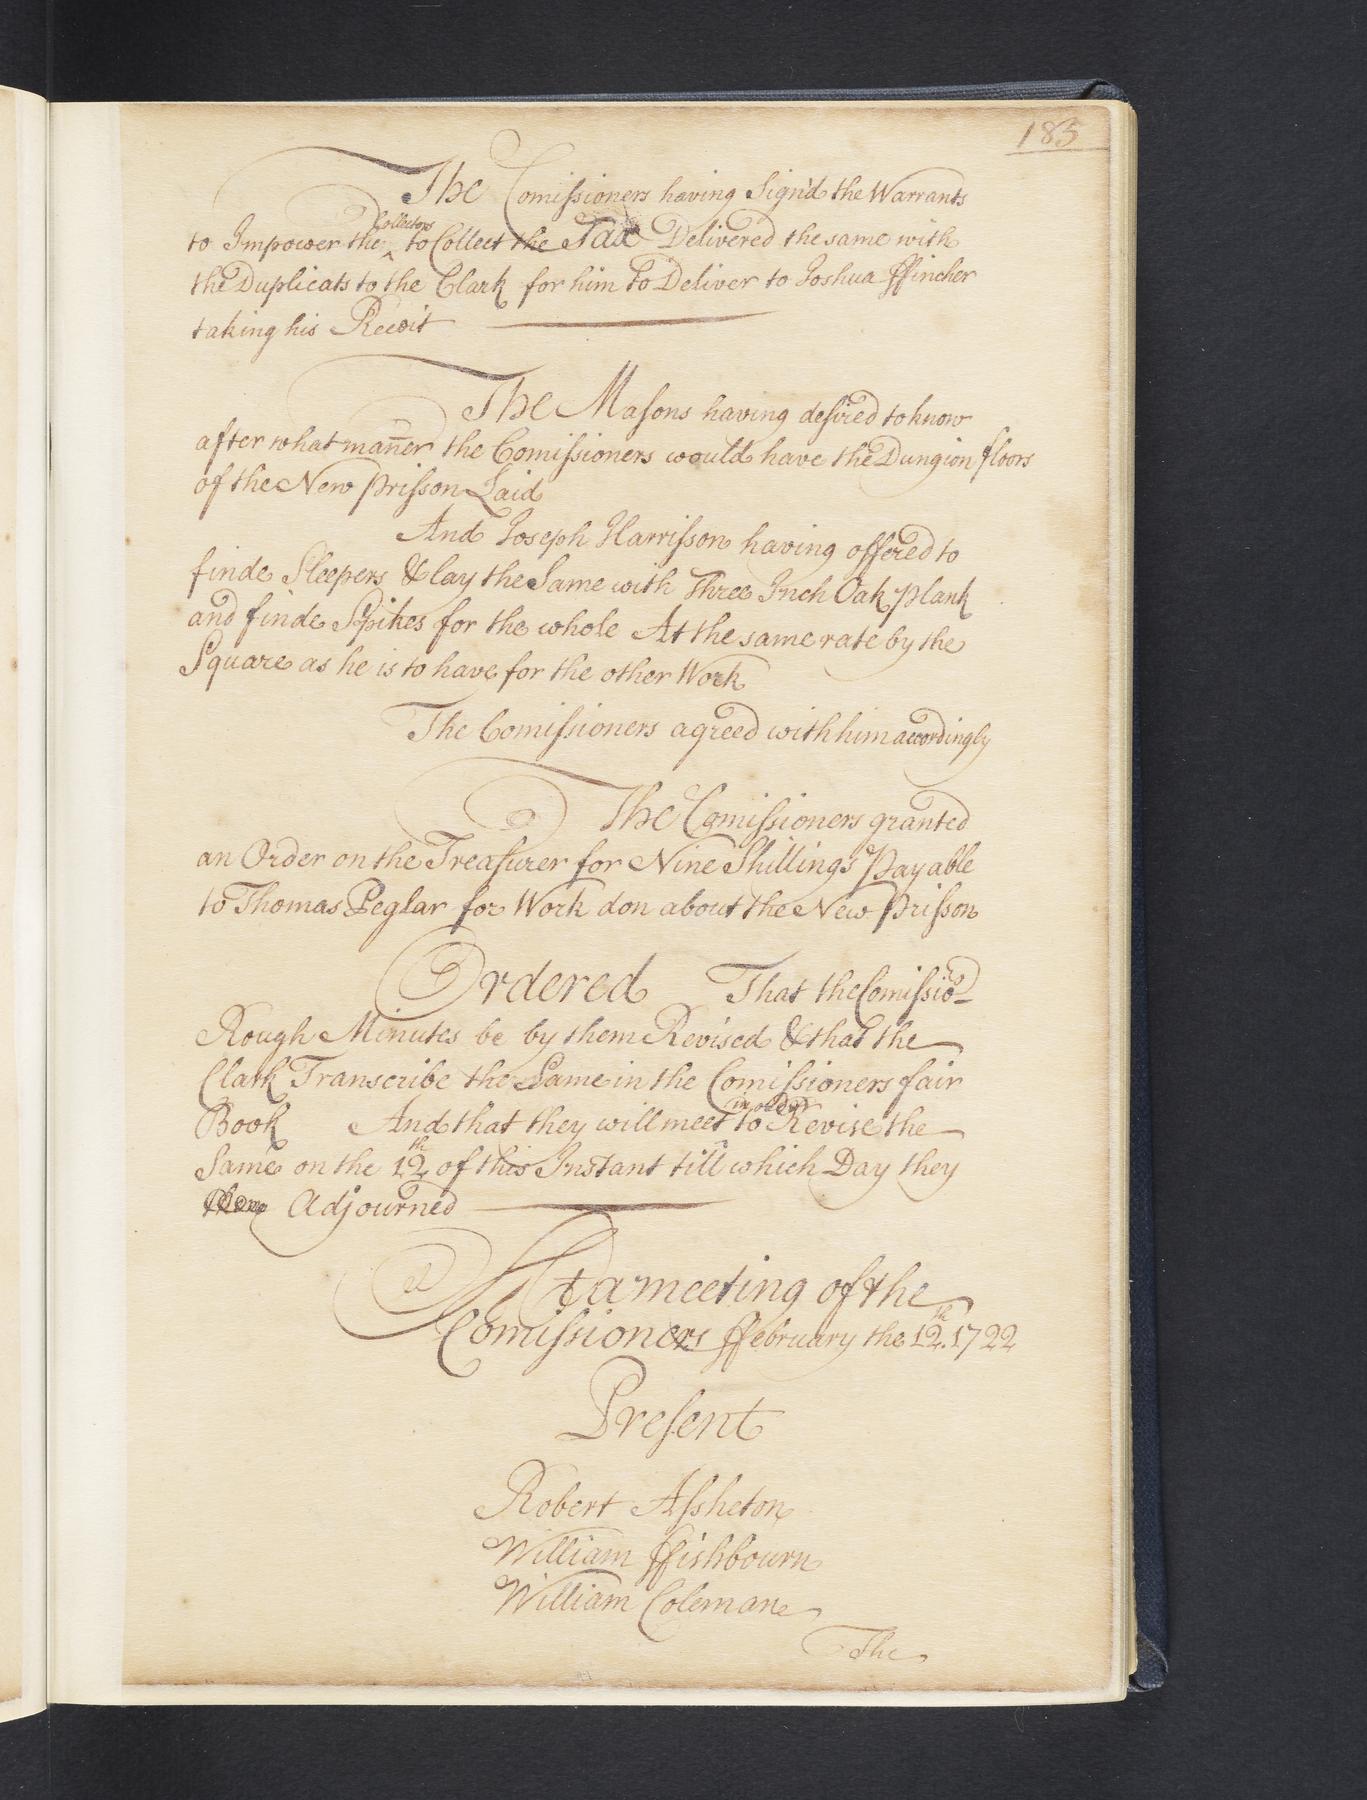 185
The Comissioners having Sign'd the Warrants
to Impower the Collectors to Collect the Tax Delivered the same with
the Duplicats to the Clark for him to Deliver to Joshua ffincher
taking his Receit
The Masons having desired to know
after what mañer the Comissioners would have the Dungion floors
of the New prisson Laid
And Joseph Harrisson having offered to
finde Sleepers & lay the Same with Three Inch Oak plank
and finde Spikes for the whole At the same rate by the
Square as he is to have for the other Work
The Comissioners agreed with him accordingly
The Comissioners granted
an Order on the Treasurer for Nine Shillings Payable
to Thomas Peglar for Work don about the New Prisson
Ordered That the Comissio.rs
Rough Minutes be by them Revised & that the
Clark Transcribe the Same in the Comissioners fair
Book And that they will meet in order to Revise the
Same on the 12th of this Instant till which Day they
Adjourned
At a meeting of the
Comissioners ffebruary the 12th. 1722
Present
Robert Assheton
William ffishbourn
William Colemane
The